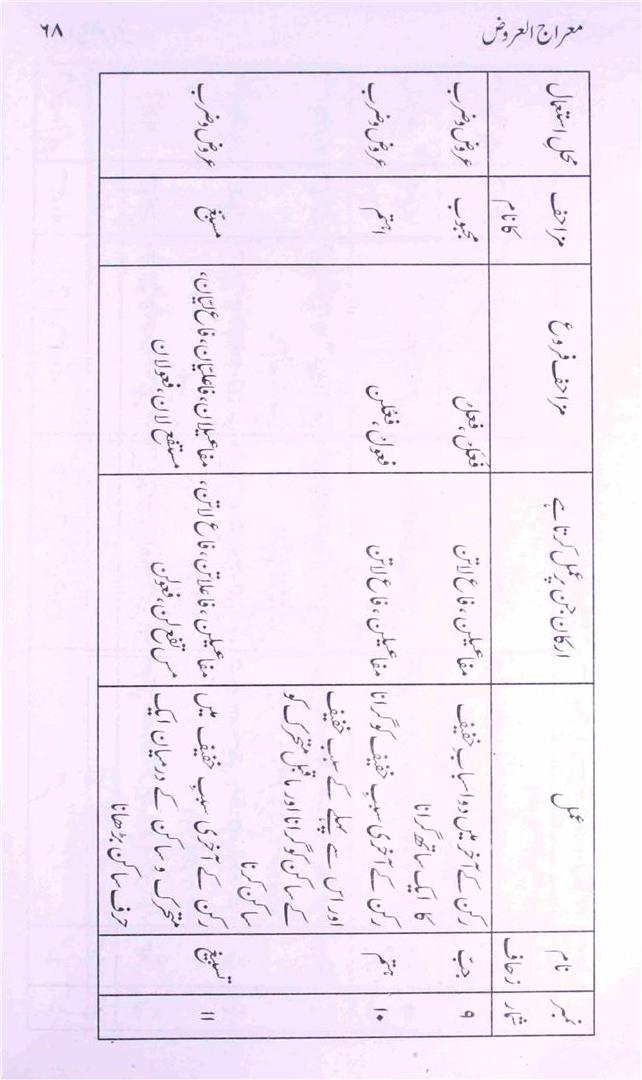 معراج العروض
۶۸
نمبر شمار
نام زحاف
عمل
ارکان جن پر عمل کرتا ہے
مزاحف فروع
مزاحف کا نام
محل استعمال
۹
جبّ
رکن کے آخر میں دو اسباب خفیف
کا ایک ساتھ گرانا
مفاعیلن، فاع لاتن
فَعَل، فعل
مجبوب
عروض و ضرب
۱۰
ہتم
رکن کے آخری سبب خفیف کو گرانا
اور اس سے پہلے کے سبب خفیف
کے ساکن کو گرانا اور ماقبل متحرک کو
ساکن کرنا
مفاعیلن، فاع لاتن
فعول، فَعْلن
اہتم
عروض و ضرب
۱۱
تسبیغ
رکن کے آخری سبب خفیف میں
متحرک و ساکن کے درمیان ایک
حرف ساکن بڑھانا
مفاعیلن، فاعلاتن، فاع لاتن،
مس تفع لن، فعولن
مفاعیلان، فاعلتان، فاع لتیان،
مستفع لان، فعولان
مسبغ
عروض و ضرب